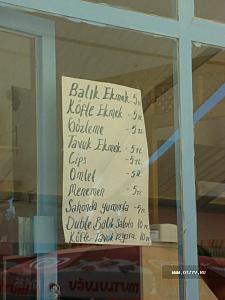 Balık Ekmek 5
Köfte Ekmek - 5 TL
Gözleme - 5 TL
Tavuk Ekmek - 5 TL
Cips - 5 TL
Omlet - 5 TL
Menemen - 5 TL
Sahanda yumurta - 5 TL
Duble Balık 10 TL
Köfte Tavuk Izgara 10 TL